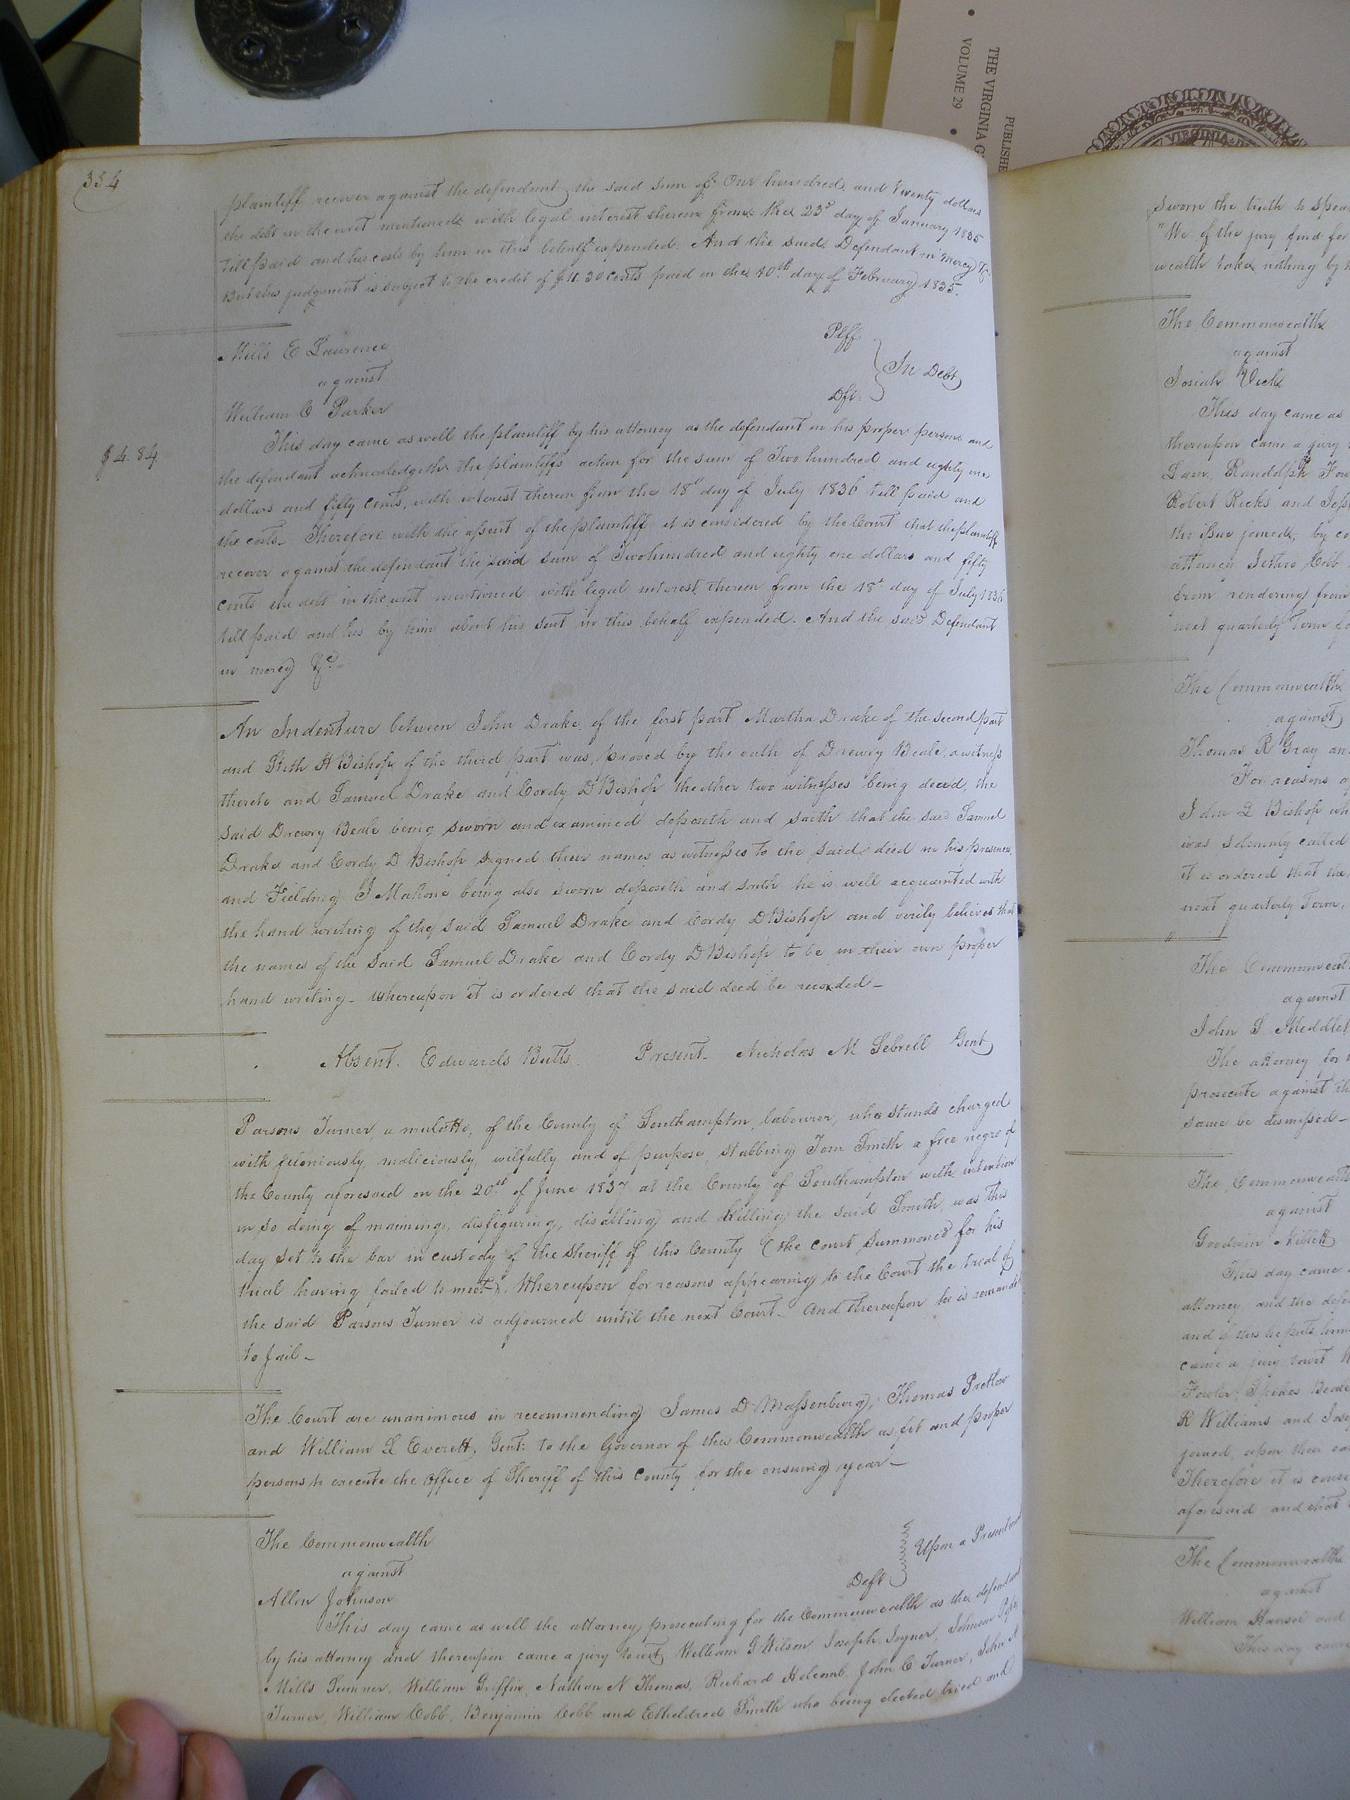 THE VIRGINIA
VOLUME 29 •
PUBLISHE
VIRGINIA
334
plaintiff recover against the defendant the said sum of One hundred and twenty dollars
the debt in the writ mentioned with legal interest thereon from the 23d day of January 1835
till paid and his costs by him in this behalf expended. And the said Defendant in mercy &c
But this judgment is subject to the credit of $11.30 cents paid on the 10th day of February 1835.
Mills E Lawrence Plff
against In Debt
William C Parker Dft.
$4.84.
This day came as well the plaintiff by his attorney as the defendant in his proper person and
the defendant acknowledgeth the plaintiffs action for the sum of Two hundred and eighty one
dollars and fifty cents, with interest thereon from the 18t day of July 1836 till paid and
the costs. Therefore with the assent of the plaintiff it is considered by the Court that the plaintiff
recover against the defendant the said sum of Two hundred and eighty one dollars and fifty
cents the debt in the writ mentioned with legal interest thereon from the 18t day of July 1836
till paid and his by him about his suit in this behalf expended. And the said Defendant
in mercy &c.
An Indenture between John Drake of the first part Martha Drake of the second part
and H Bishop of the third part was proved by the oath of Drewry Beale a witness
thereto and Samuel Drake and Cordy D Bishop the other two witnesses being decd, the
said Drewry Beale being sworn and examined deposeth and saith that the said Samuel
Drake and Cordy D Bishop signed their names as witnesses to the said deed in his presence,
and Fielding J Mahone being also sworn deposeth and saith he is well acquainted with
the hand writing of the said Samuel Drake and Cordy D Bishop and verily believes that
the names of the said Samuel Drake and Cordy D Bishop to be in their own proper
hand writing - Whereupon it is ordered that the said deed be recorded -
Absent. Edwards Butts Present - Nicholas M Sebrell Gent
Parsons Turner, a mulatto, of the County of Southampton, labourer, who stands charged
with feloniously, maliciously, wilfully and of purpose, stabbing Tom Smith a free negro of
the County aforesaid on the 20th of June 1837 at the County of Southampton with intention
in so doing of maiming, disfiguring, disabling and killing the said Smith, was this
day set to the bar in custody of the sheriff of this County (the court summoned for his
trial having failed to meet). Whereupon for reasons appearing to the Court the trial of
the said Parsons Turner is adjourned until the next Court - And thereupon he is remanded
to jail -
The Court are unanimous in recommending James D Massenburg, Thomas Pretlow
and William L Everett, Gent: to the Governor of this Commonwealth as fit and proper
persons to execute the office of Sheriff of this County for the ensuing year -
The Commonwealth
against Upon a Presentment
Allen Johnson Deft
This day came as well the attorney prosecuting for the Commonwealth as the defendant
by his attorney and thereupon came a jury to wit, William G Wilson, Joseph Joyner, Johnson Pope,
Mills Sumner, William Griffin, Nathan N Thomas, Richard Holcomb, John C Turner, John A
Turner, William Cobb, Benjamin Cobb and Etheldred Smith who being elected tried and
sworn the truth to speak
"We of the jury find for
wealth take nothing by
The Commonwealth
against
Josiah Vick
This day came as
thereupon came a jury
Randolph
Robert Ricks and
the issue joined, by co
attorney Jethro Cobb
from rendering
next quarterly Term
The Commonwealth
against
Thomas R Gray an
For reasons a
John L Bishop wh
was solemnly called
it is ordered that the
next quarterly Term,
The Commonwealt
against
John S
The attorney for
prosecute against th
same be dismissed -
The Commonwealth
against
Goodwin
This day came
attorney, and the defe
and of this he puts him
came a jury towit
Fowler,
R Williams and
joined, upon their oa
Therefore it is consi
aforesaid and that
The Commonwealth
against
William
This day came